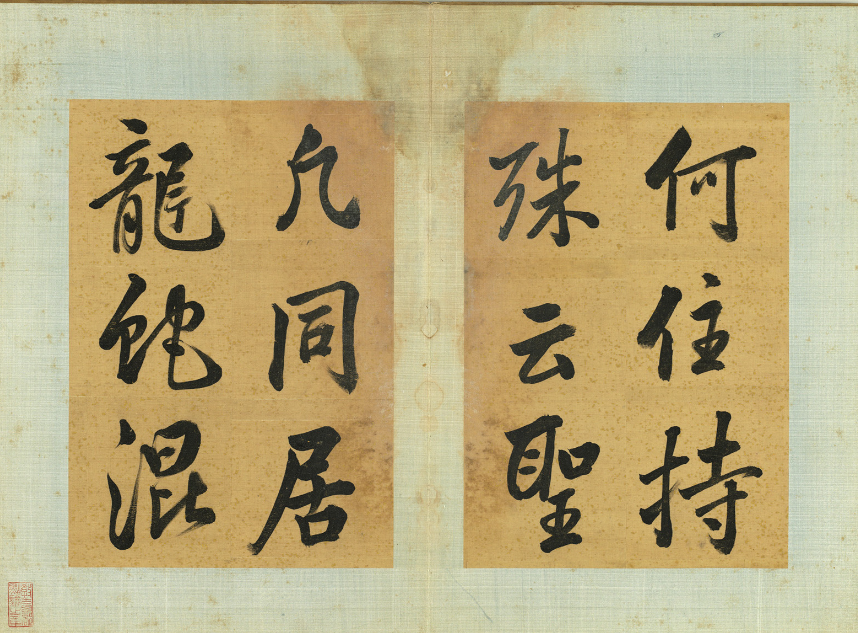 何住持
殊云聖
凡同居
龍虵混